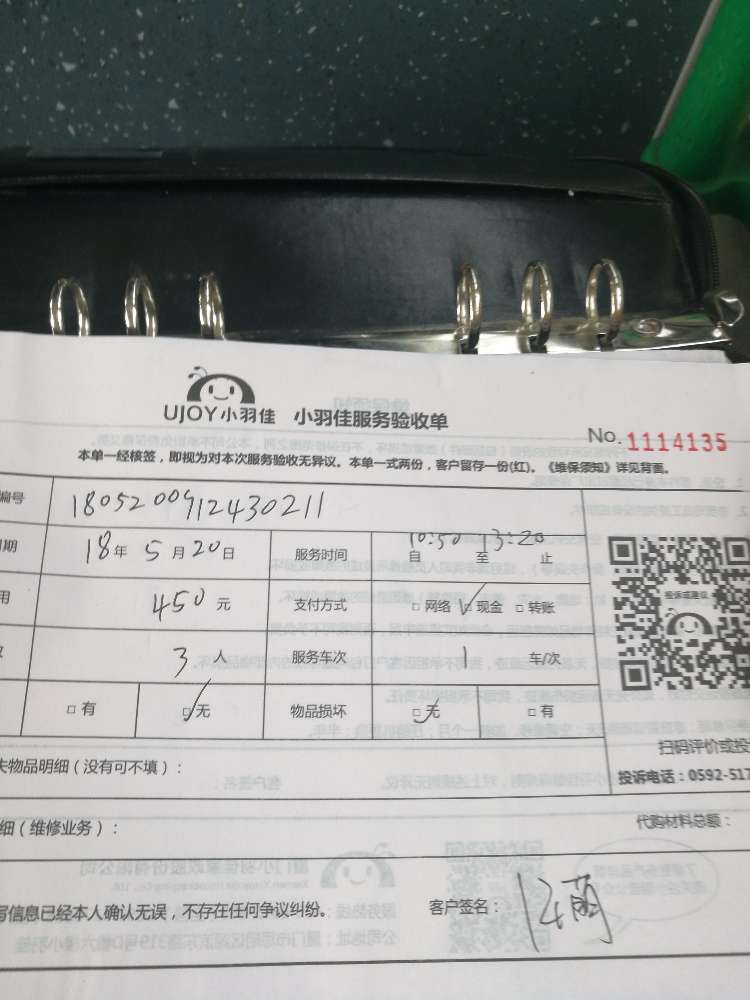 UJOY小羽佳 小羽佳服务验收单
No. 1114135
本单一经核签，即视为对本次服务验收无异议。本单一式两份，客户留存一份(红)。《维保须知》详见背面。
编号 1805200912430211
期 18年 5月20日 服务时间 10:50 自 至 3:20 止
用 450元 支付方式 □网络 □现金 □转账
3人 服务车次 1 车/次
□有 □无 物品损坏 □无 □有
投诉或建议
扫码评价或投
失物品明细（没有可不填）：
投诉电话：0592-517
细（维修业务）： 代购材料总额：
写信息已经本人确认无误，不存在任何争议纠纷。 客户签名：